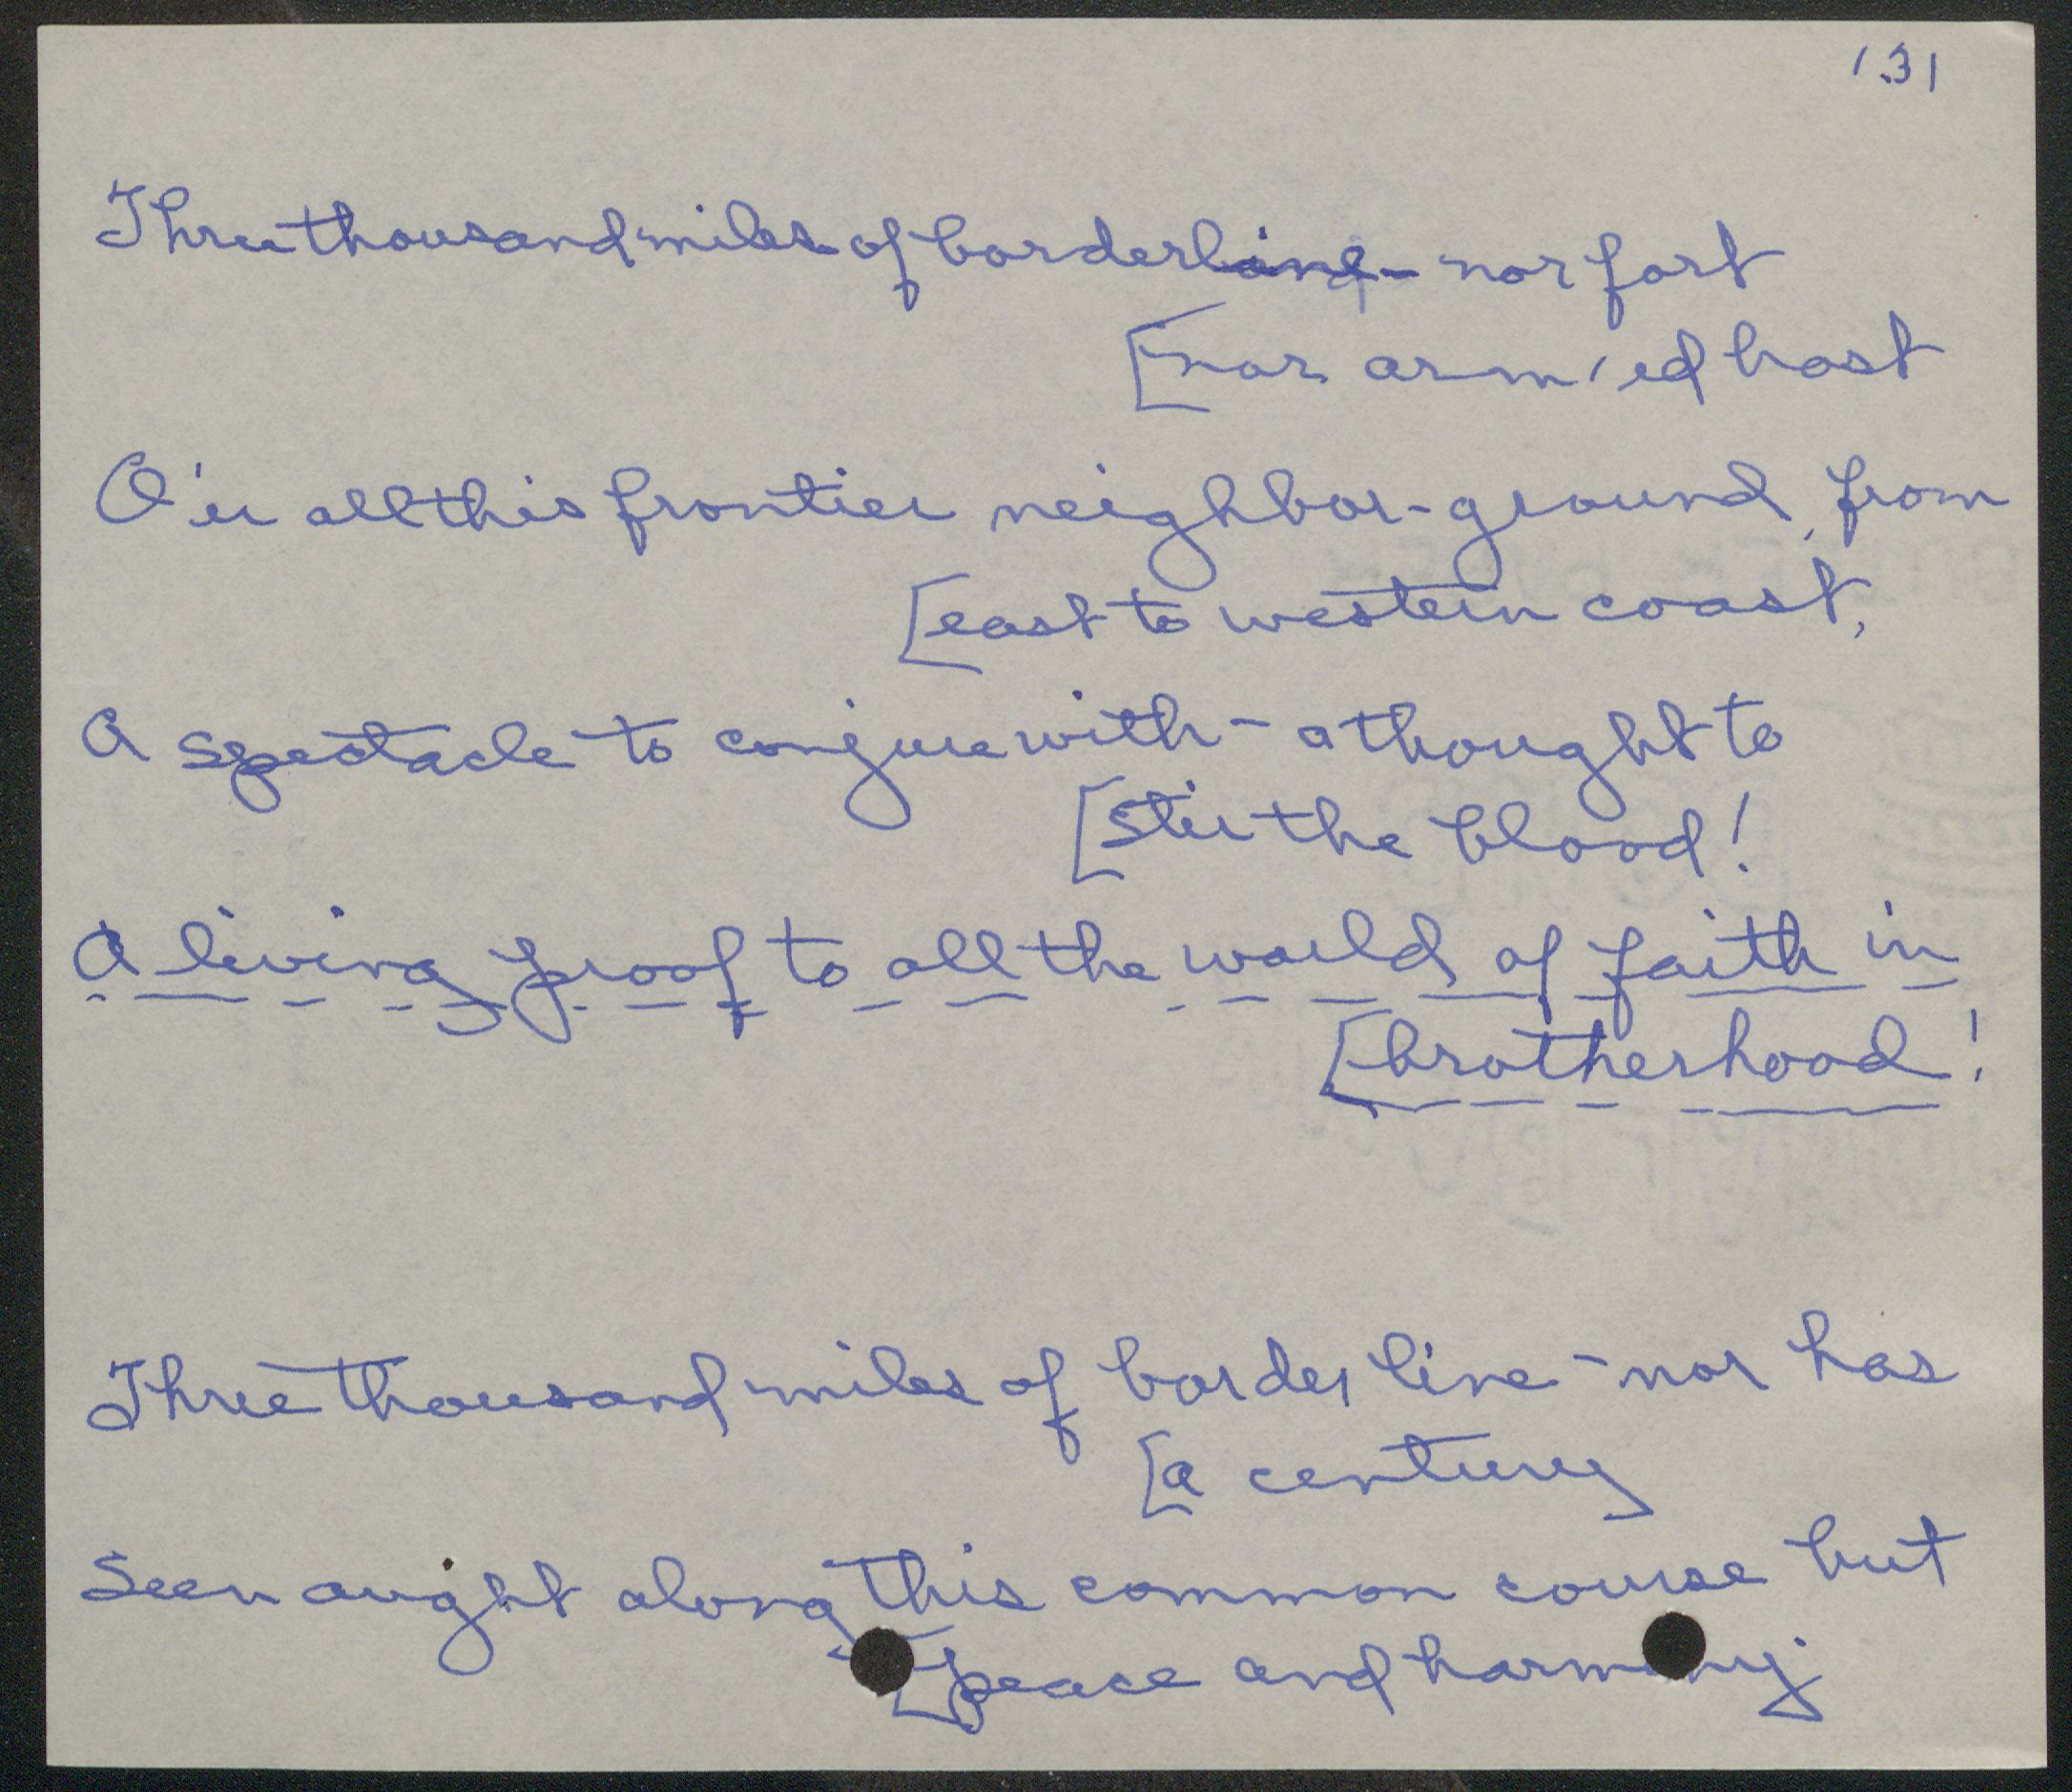 131
Three thousand miles of borderline - nor fort
[nor arm'ed host
O'er all this frontier neighbor-ground, from
[east to western coast,
A spectacle to conjure with - a thought to
[stir the blood!
A living proof to all the world of faith in
[brotherhood!
Three thousand miles of border line - nor has
[a century
Seen aught along this common course but
[peace and harmony